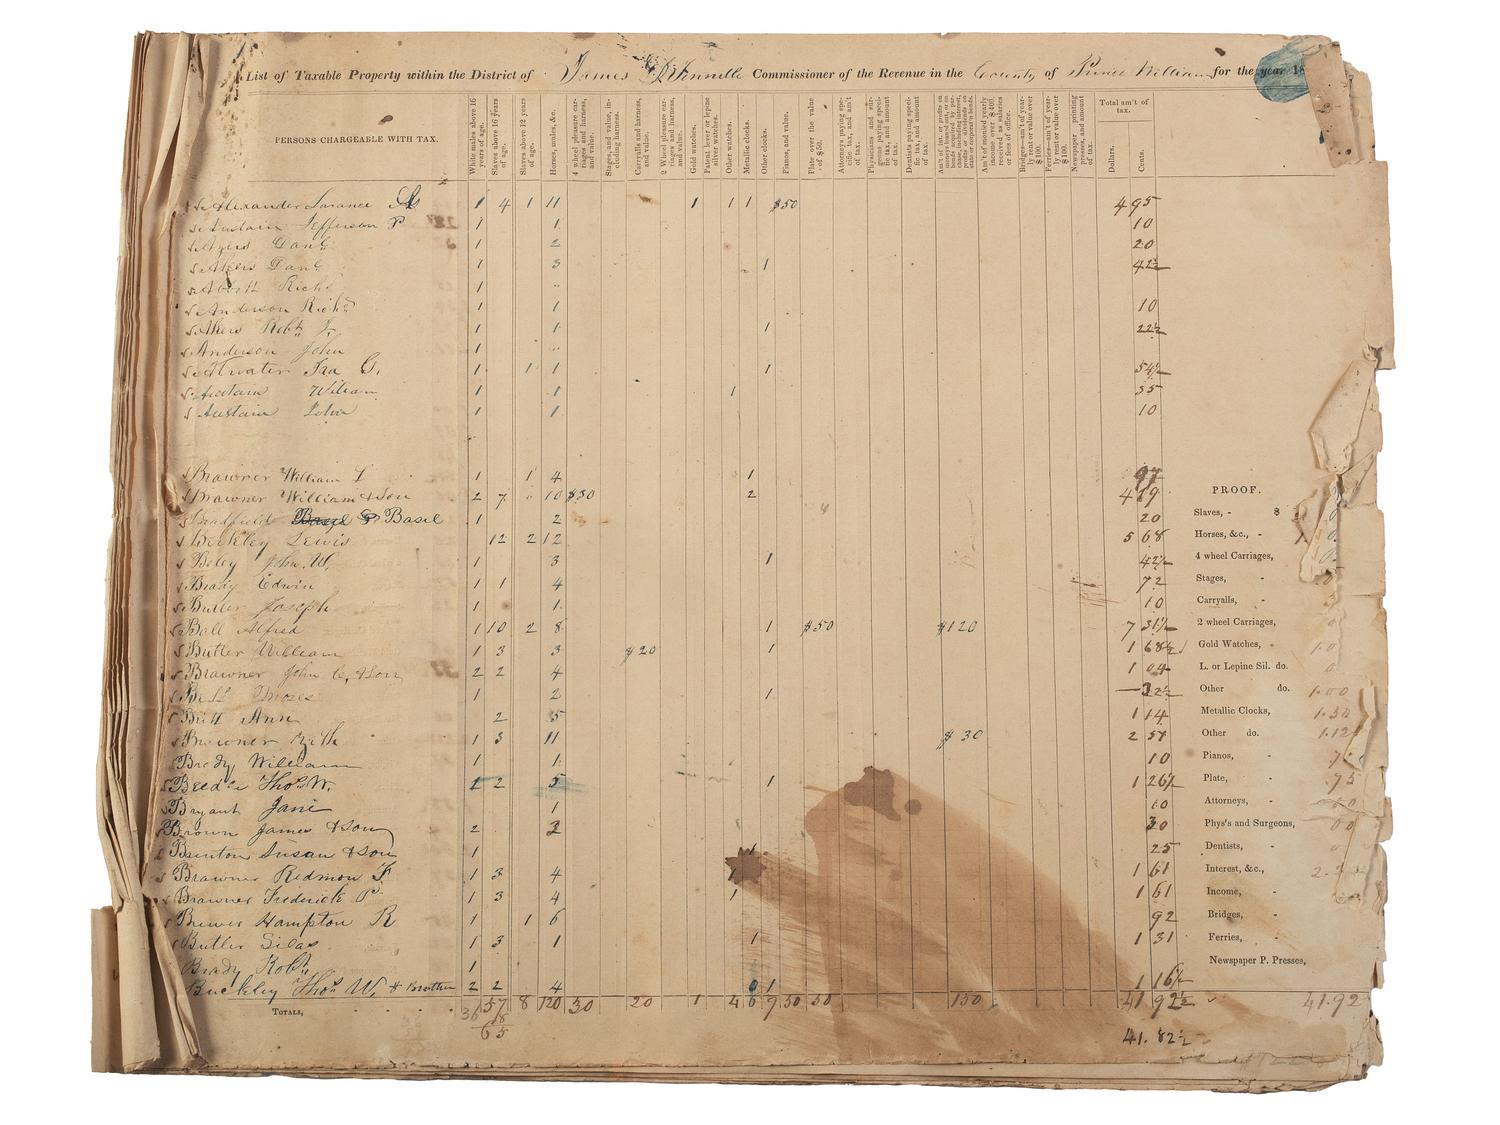 List of Taxable Property within the District of James Commissioner of the Revenue in the County of Prince William for the year
PERSONS CHARGEABLE WITH TAX.
White males above 16 years of age.
Slaves above 16 years of age.
Slaves above 12 years of age.
Horses, mules, &c.
4 wheel pleasure carriages and harness, and value.
Stages, and value, including harness.
Carryalls and harness, and value.
2 Wheel pleasure carriages and harness, and value.
Gold watches.
Patent lever or lepine silver watches.
Other watches.
Metallic clocks.
Other clocks.
Pianos, and value.
Plate over the value of $50.
Attorneys paying specific tax, and am't of tax.
Physicians and surgeons paying specific tax, and amount of tax.
Dentists paying specific tax, and amount of tax.
Am't of monied yearly income over $400, received as salaries or fees of office.
Bridges—am't of yearly rent or value over $100.
Ferries—am't of yearly rent or value over $100.
Newspaper printing presses, and amount of tax.
Total am't of tax.
Dollars. Cents.
Alexander 1 4 1 11 1 1 1 $50 4 95
Austain Jefferson P 1 1 10
Ayers Danl 1 2 20
Akers Danl 1 3 1 42½
Abott Richd 1
Anderson Richd 1 1 10
Akers Robt 1 1 1 22½
Anderson John 1
Atwater Ira G. 1 1 1 1 54½
Austain William 1 1 1 35
Austain John 1 1 10
Brawner William L 1 1 4 1 97
Brawner William & Son 2 7 10 $30 2 4 19
Bradfield Basil 1 2 20
Berkley Lewis 12 2 12 5 68
Beley John W. 1 3 1 42½
Brady Edwin 1 1 4 72
Butler Joseph 1 1 10
Ball Alfred 1 10 2 8 1 $50 $120 7 31½
Butler William 1 3 3 $20 1 1 68½
Brawner John & Son 2 2 4 1 04
Bell 1 2 1 22½
Butt Ann 2 5 1 14
Brawner 1 3 11 $30 2 51
Brady William 1 1 10
Beedle Thos W. 1 2 5 1 1 26½
Bryant Jane 1 10
Brown James & Son 2 30
Brenton Susan & Son 1 1 25
Brawner Redmon F 1 3 4 1 1 61
Brawner Frederick P 1 3 4 1 1 61
Brewer Hampton R 1 1 6 92
Butler Silas 1 3 1 1 1 31
Brady Robt 1
Buckley Thos W. & Brother 2 2 4 1 1 16½
Totals, 36 57 8 120 30 20 1 4 6 9 50 50 150 41 92½ 41.92
65
41.82½
PROOF.
Slaves, - $
Horses, &c., -
4 wheel Carriages,
Stages, -
Carryalls, -
2 wheel Carriages,
Gold Watches, - 1.0
L. or Lepine Sil. do.
Other do. 1.00
Metallic Clocks, 1.50
Other do. 1.12
Pianos, -
Plate, - .75
Attorneys, -
Phys's and Surgeons,
Dentists, -
Interest, &c., -
Income, -
Bridges, -
Ferries, -
Newspaper P. Presses,